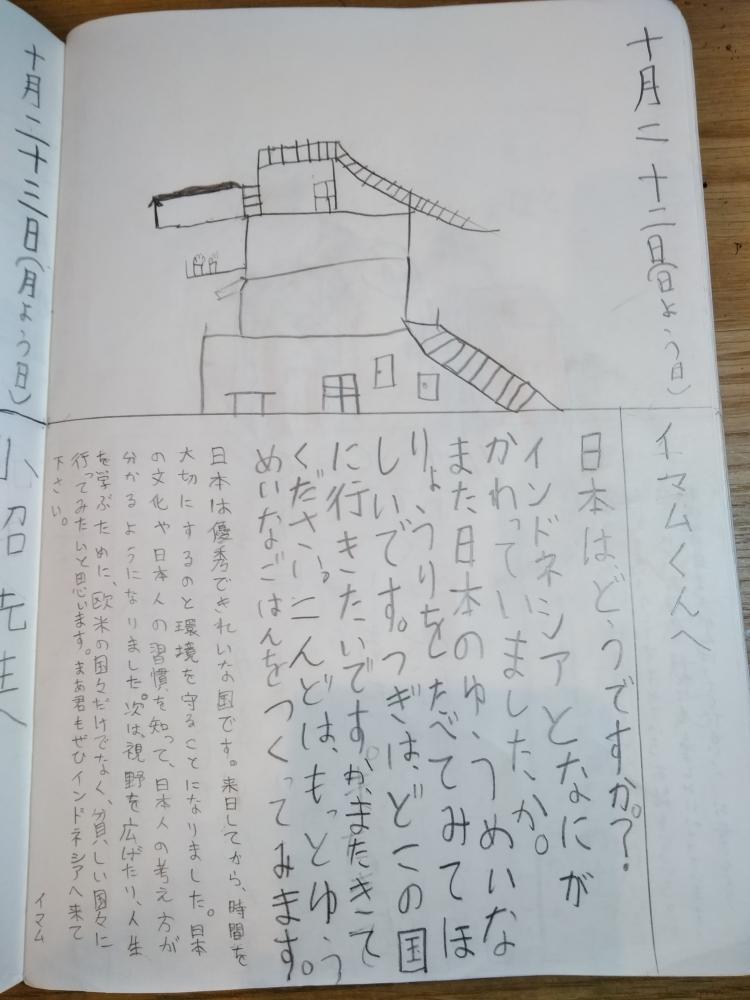 十月二十二日(日よう日)
イマムくんへ
日本は、どうですか。?
インドネシアとなにが
かわっていましたか。
また日本のゆうめいな
りょうりをたべてみてほ
しいです。つぎは、どこの国
に行きたいですが、またきて
ください。こんどは、もっとゆう
めいなごはんをつくってみます。
日本は優秀できれいな国です。来日してから、時間を
大切にするのと環境を守ることになりました。日本
の文化や日本人の習慣を知って、日本人の考え方が
分かるようになりました。次は、視野を広げたり、人生
を学ぶために、欧米の国々だけでなく、貧しい国々に
行ってみたいと思います。まあ君もぜひインドネシアへ来て
下さい。
イマム
十月二十三日(月よう日)
小沼先生へ